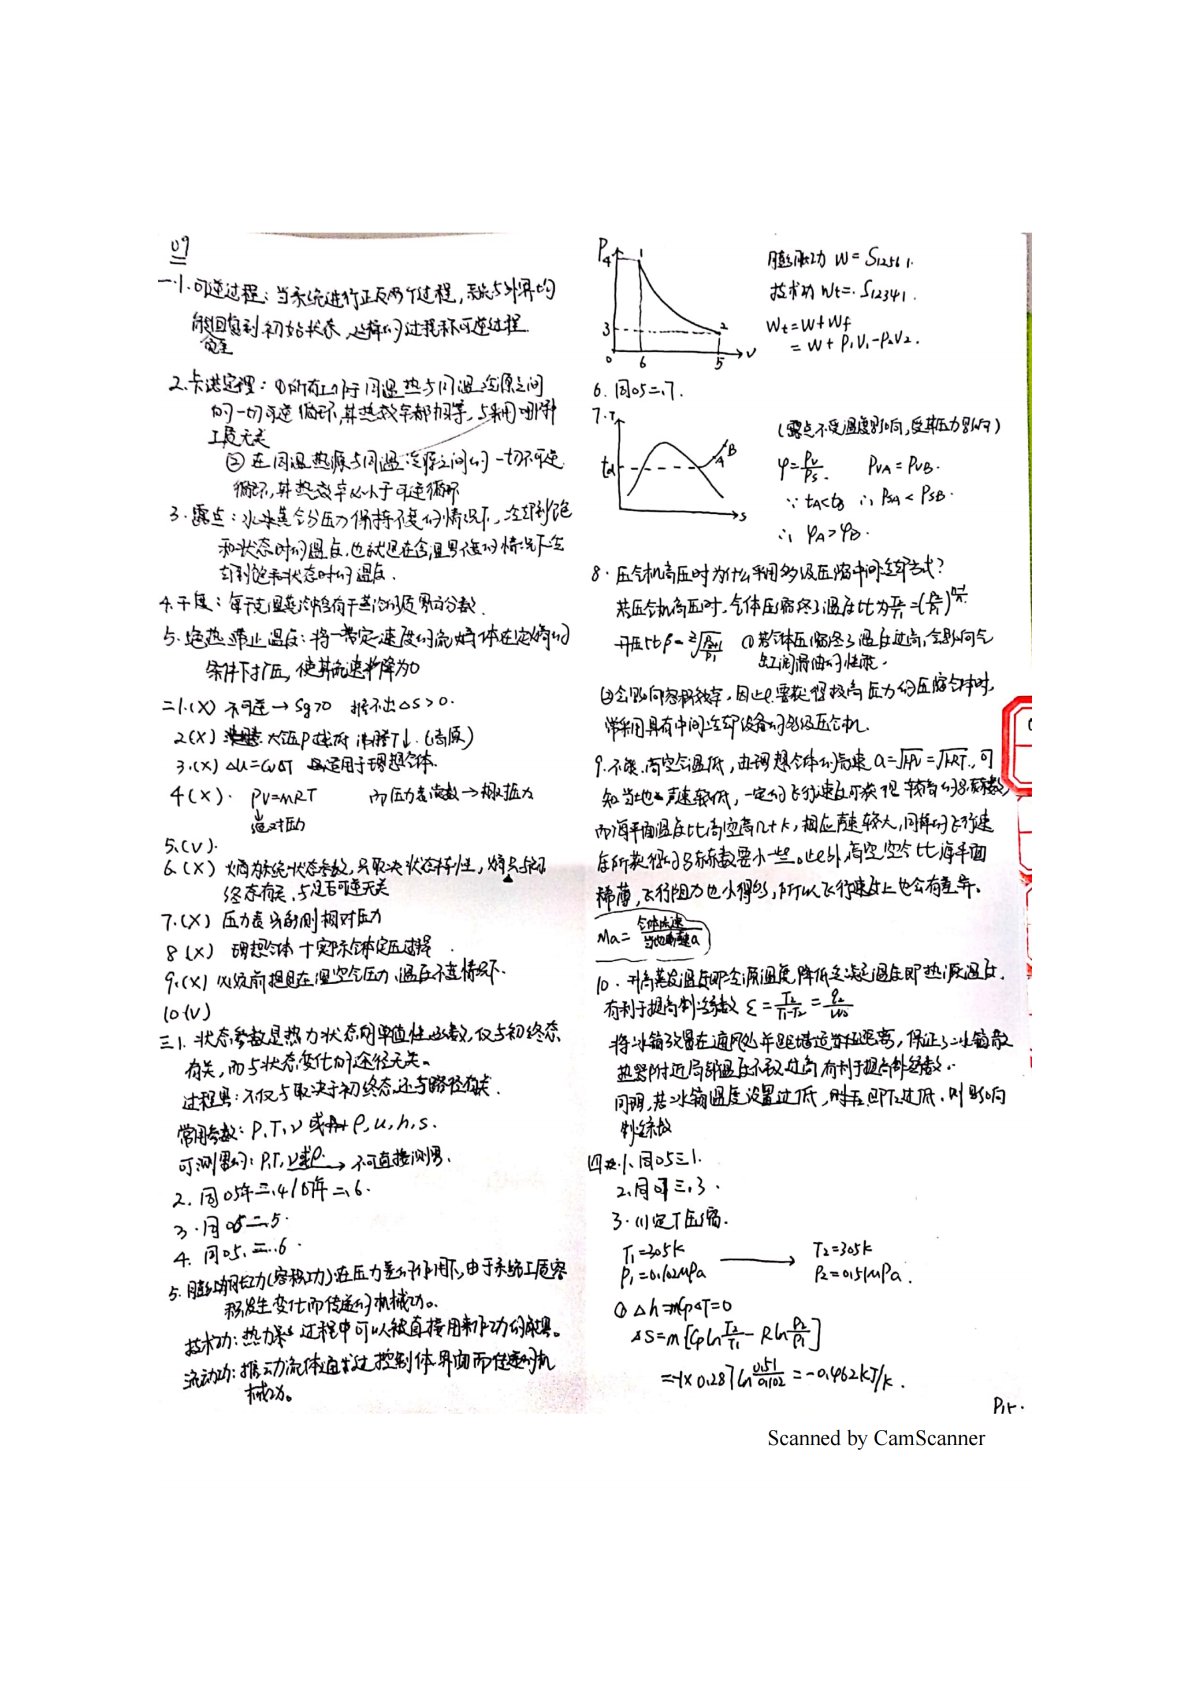 09
一.1.可逆过程：当系统进行正反两个过程，系统与外界均
能回复到初始状态，这样的过程称可逆过程.
完全
2.卡诺定理：①所有工作于同温热与同温冷源之间
的一切可逆循环，其热效率都相等，与采用哪种
工质无关
② 在同温热源与同温冷源之间的一切不可逆
循环，其热效率必小于可逆循环
3.露点：水蒸气分压力保持不变的情况下，冷却到饱
和状态时的温度，也就是在含湿量不变的情况下冷
却到饱和状态时的温度.
4.干度：每千克湿蒸汽中含有干蒸汽的质量百分数.
5.绝热滞止温度：将一带定速度的流体在定熵的
条件下扩压，使其流速降为0
二1.(X) 不可逆→Sg>0 推不出△S>0.
2(X) 大气压P越低 沸腾T↓.(高原)
3.(X) △U=Cv△T 只适用于理想气体.
4(X). PV=MRT 而压力表读数→相对压力
↓
绝对压力
5.(V).
6.(X) 熵为系统状态参数，只取决状态特性，熵只与初
终态有关，与是否可逆无关
7.(X) 压力表只能测相对压力
8(X) 理想气体 十实际气体定压过程
9.(X) 必须前提是在湿空气压力、温度不变情况下.
10(V)
三1.状态参数是热力状态的单值性函数，仅与初终态
有关，而与状态变化的途径无关。
过程量：不仅与取决于初终态还与路径有关.
常用参数：P,T,V或 ρ,u,h,s.
可测量的：P,T,V或ρ. → 不可直接测量.
2. 同05年三.4/07年二.6.
3.同05二.5.
4. 同05.二.6.
5.膨胀功(容积功)：在压力差的作用下，由于系统工质容
积发生变化而传递的机械功。
技术功：热力 过程中可以被直接用来作功的能量。
流动功：推动流体通过控制体界面而传递的机
械功。
P 4 1 3 2 0 6 5 V
膨胀功 W=S12561.
技术功 Wt=.S12341.
Wt=W+Wf
=W+P1V1-P2V2.
6. 同05二.7.
7. T td A B S
(露点不受温度影响，受其压力影响)
φ=Pv/Ps. PvA=PvB.
∵ tA<tB ∴ PsA<PsB.
∴ φA>φB.
8.压气机高压时为什么采用多级压缩中间冷却方式?
若压气机高压时，气体压缩终了温度比为
升压比β= ①若气体压缩终了温度过高，会影响气
缸润滑油的性能.
②会影响容积效率，因此要获得较高压力的压缩气体时，
常采用具有中间冷却设备的多级压气机.
9.不能.高空气温低，由理想气体的声速 a=√kPV=√kRT，可
知当地声速较低，一定的飞行速度可获得较高的马赫数，
而海平面温度比高空高几十K，相应声速较大，同样的飞行速
度所获得的马赫数要小一些。此外，高空空气比海平面
稀薄，飞行阻力也小得多，所以飞行速度上也会有差异。
Ma=气体流速/当地声速a
10.升高蒸发温度即冷源温度，降低冷凝温度即热源温度，
有利于提高制冷系数 ε=T2/(T1-T2)=q2/w0
将冰箱放置在通风处并距墙适当距离，保证了冰箱散
热器附近局部温度不致过高有利于提高制冷系数.
同理，若冰箱温度设置过低，则 即T2过低.则影响
制冷系数
四.1.同05三1.
2.同 三.3.
3.(1)定T压缩.
T1=305K → T2=305K
P1=0.102MPa P2=0.51MPa.
① △h=mCp△T=0
△S=m[Cp ln T2/T1 - R ln P2/P1]
=-1×0.287 ln 0.51/0.102=-0.462KJ/K.
P15.
Scanned by CamScanner